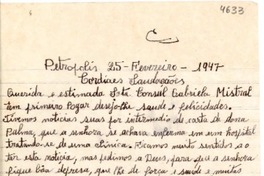 4633
Petropolis 25-Fevereiro-1947
Cordiaes Saudações
Querida e estimada Sta Consul Gabriela Mistral
Em primeiro logar desejo-lhe saude e felicidades.
Tivemos noticias suas por intermedio de carta de dona
Palma, que a senhora se achava enferma em um hospital
tratando-se de uma clinica. Ficamos muito sentidos, ao
ter esta noticia, mas pedimos a Deus, para que a senhora
fique bôa depressa, que lhe de força e saude e muitos